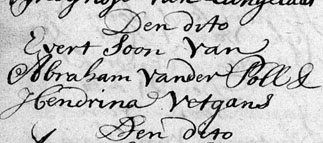 Den dito
Evert Soon van
Abraham vander Poll &
Hendrina Vetgans
Den dito